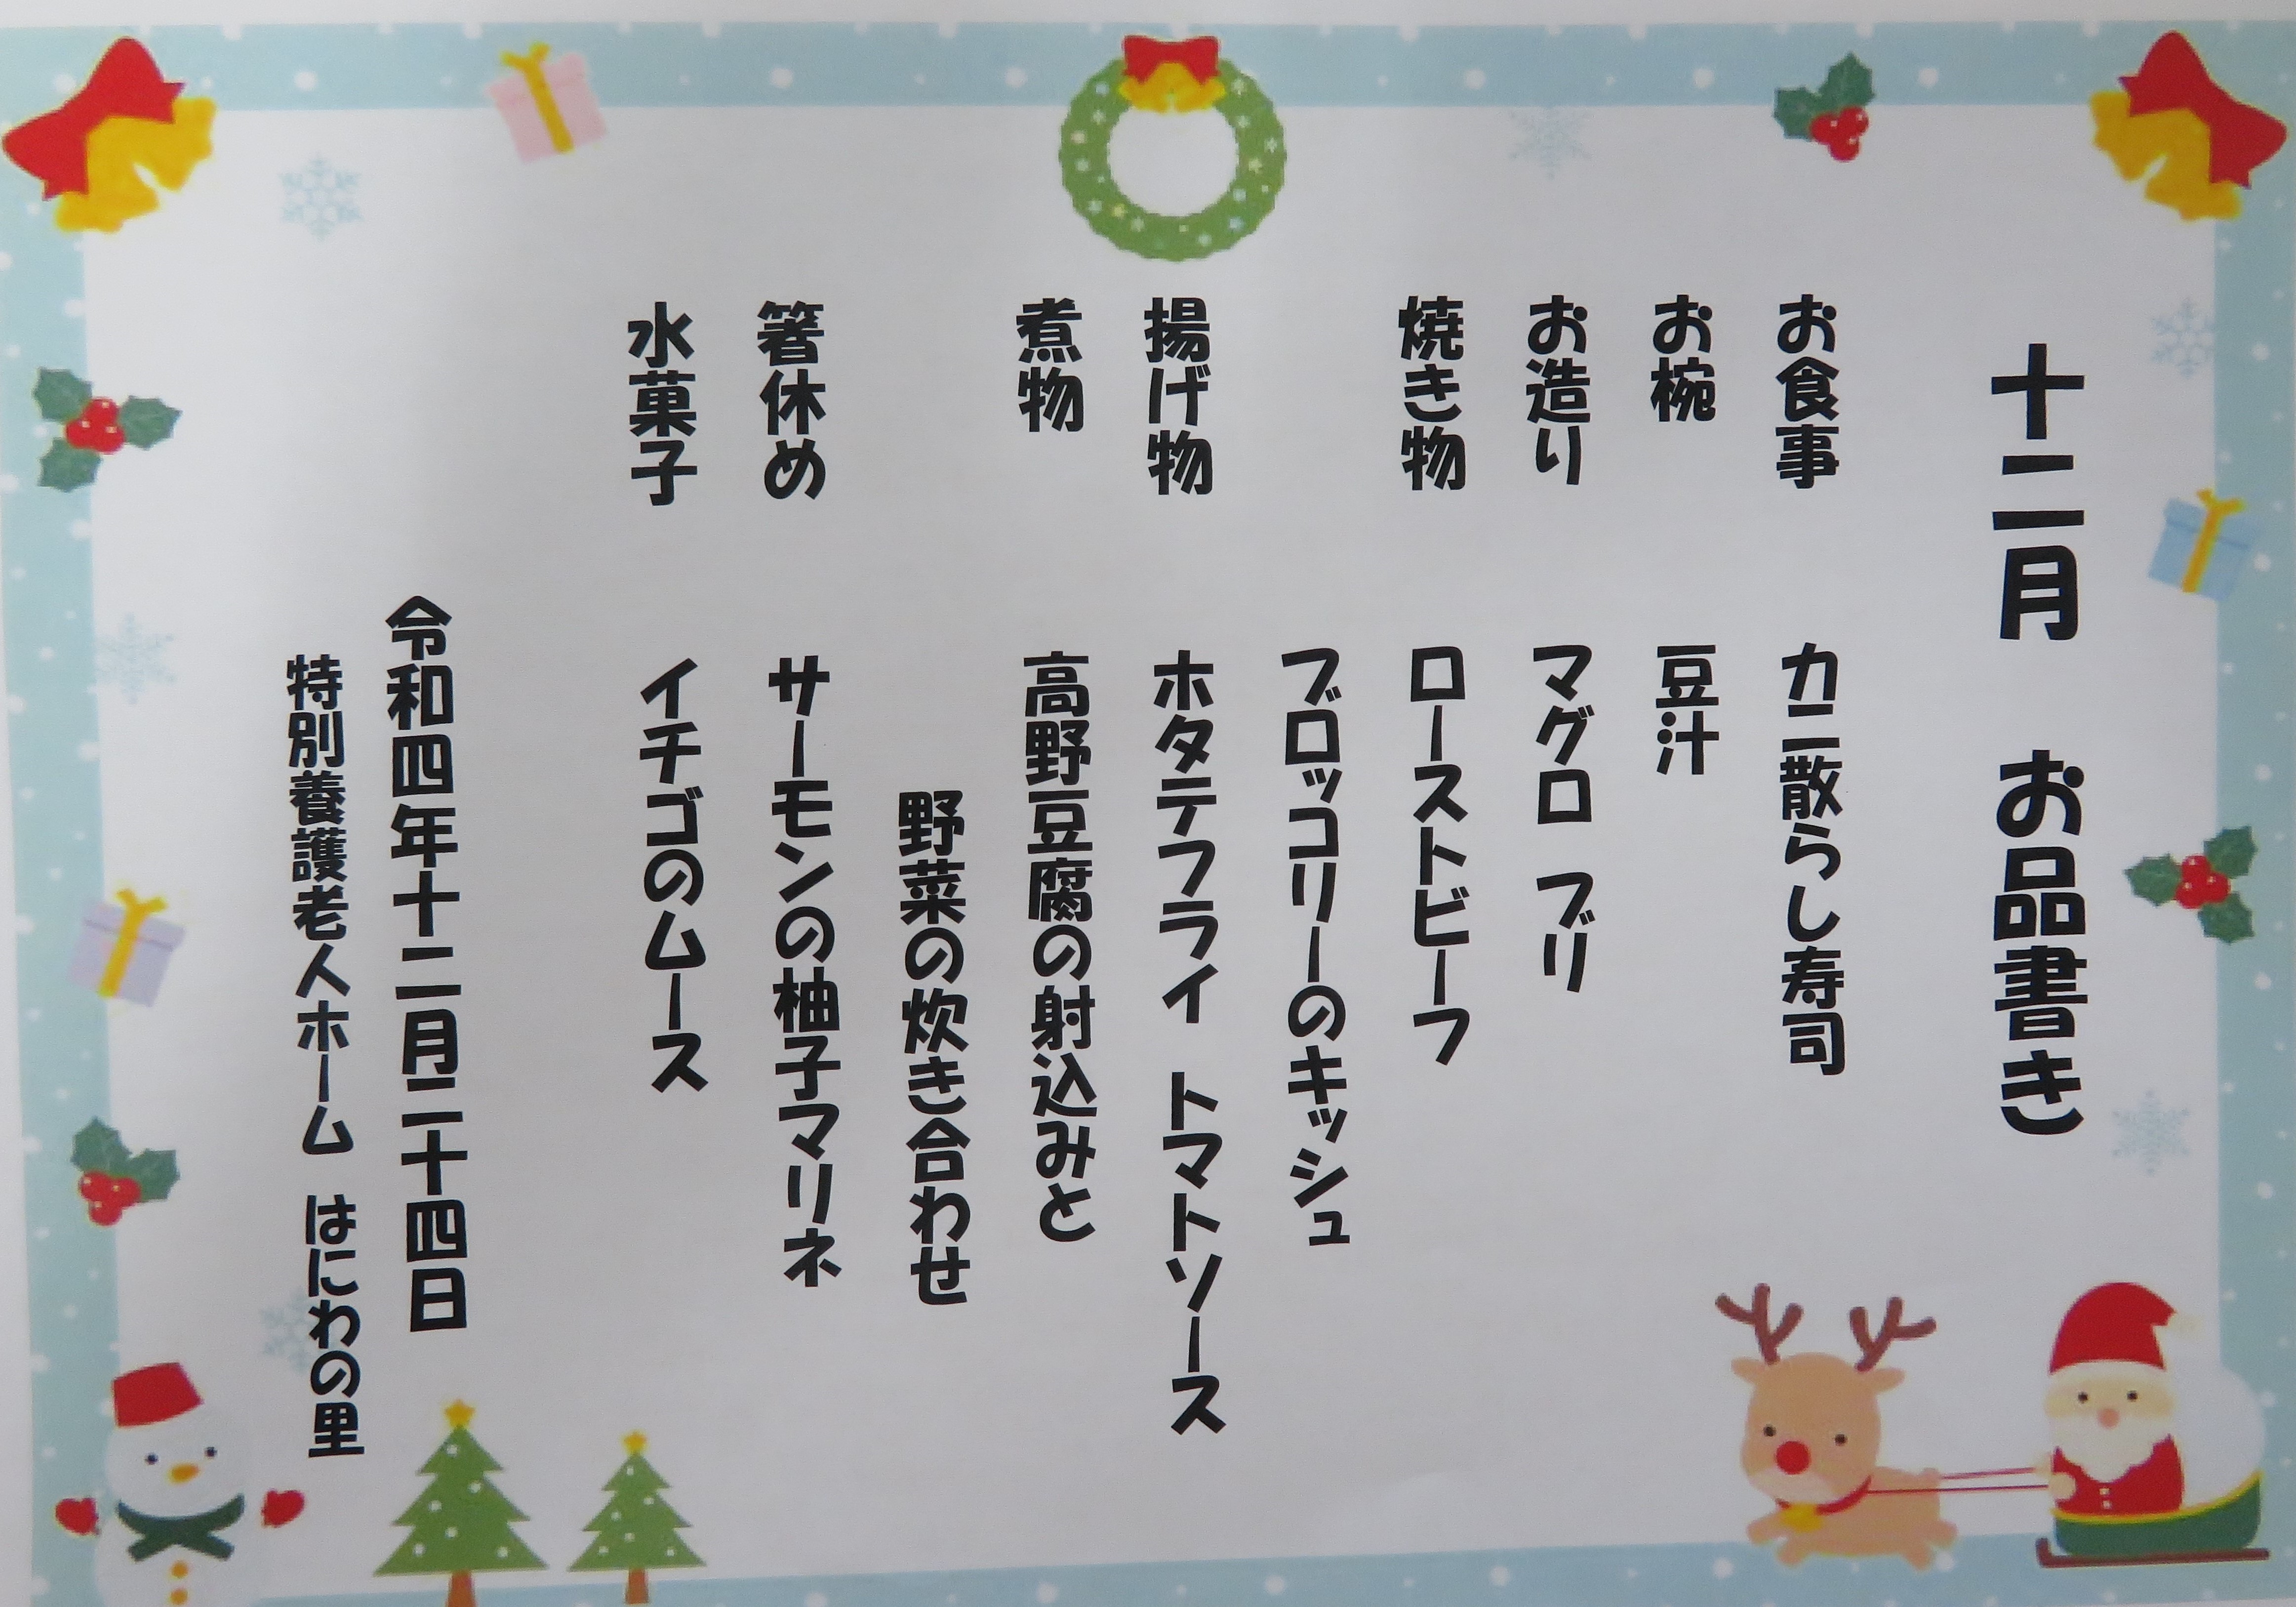 十二月　お品書き
お食事　カニ散らし寿司
お椀　豆汁
お造り　マグロ　ブリ
焼き物　ローストビーフ
ブロッコリーのキッシュ
揚げ物　ホタテフライ　トマトソース
煮物　高野豆腐の射込みと
野菜の炊き合わせ
箸休め　サーモンの柚子マリネ
水菓子　イチゴのムース
令和四年十二月二十四日
特別養護老人ホーム　はにわの里